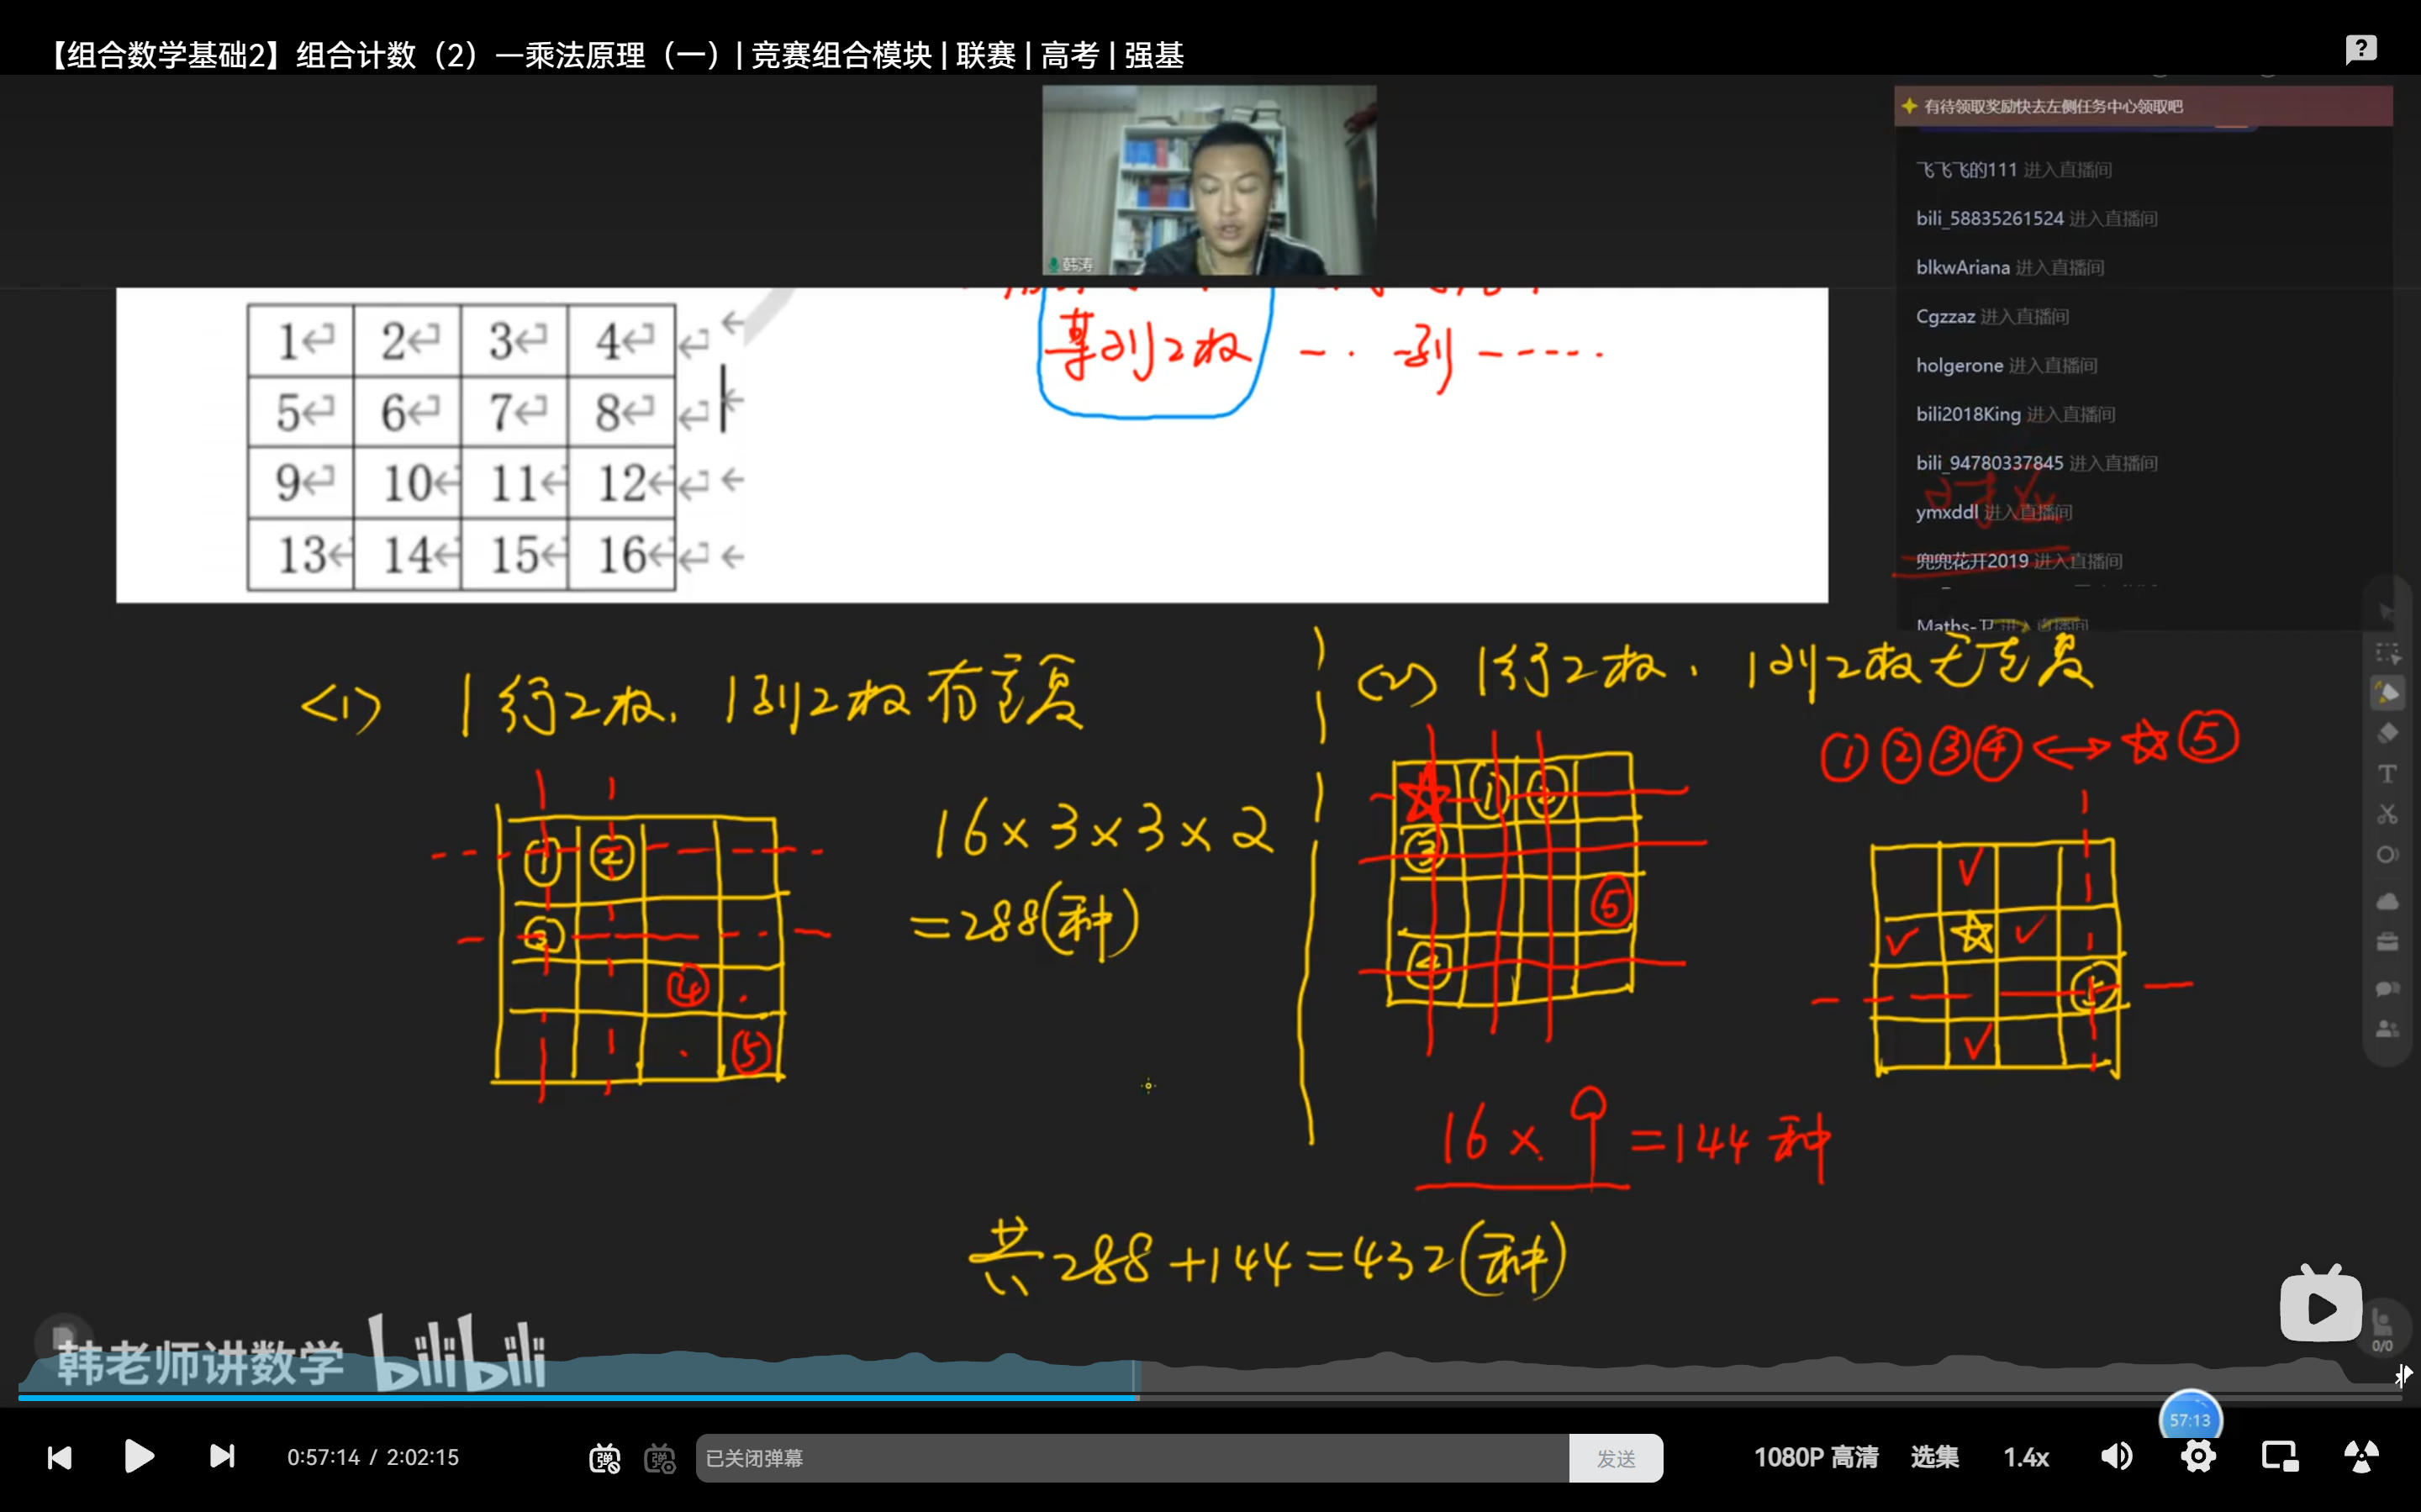 【组合数学基础2】组合计数（2）—乘法原理（一）| 竞赛组合模块 | 联赛 | 高考 | 强基
韩涛
有待领取奖励快去左侧任务中心领取吧
飞飞飞的111 进入直播间
bili_58835261524 进入直播间
blkwAriana 进入直播间
Cgzzaz 进入直播间
holgerone 进入直播间
bili2018King 进入直播间
bili_94780337845 进入直播间
ymxddl 进入直播间
兜兜花开2019 进入直播间
Maths-卫 进入直播间
对应
1 2 3 4
5 6 7 8
9 10 11 12
13 14 15 16
某列2枚 -- · 一列 -----.
<1> 1行2枚，1列2枚有重复
① ②
③
④
⑤
16×3×3×2
=288(种)
<2> 1行2枚，1列2枚无重复
①②③④ ↔ ☆⑤
☆ ① ②
③
⑤
④
✓
✓ ☆ ✓
⑤
✓
16×9=144种
共288+144=432(种)
韩老师讲数学 bilibili
0/0
57:13
0:57:14 / 2:02:15
弹 弹 已关闭弹幕 发送
1080P 高清 选集 1.4x